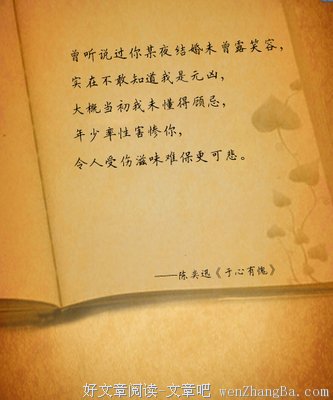 曾听说过你某夜结婚未曾露笑容，
实在不敢知道我是元凶，
大概当初我未懂得顾忌，
年少率性害惨你，
令人受伤滋味难保更可悲。
——陈奕迅《于心有愧》
好文章阅读-文章吧 wenZhangBa.com